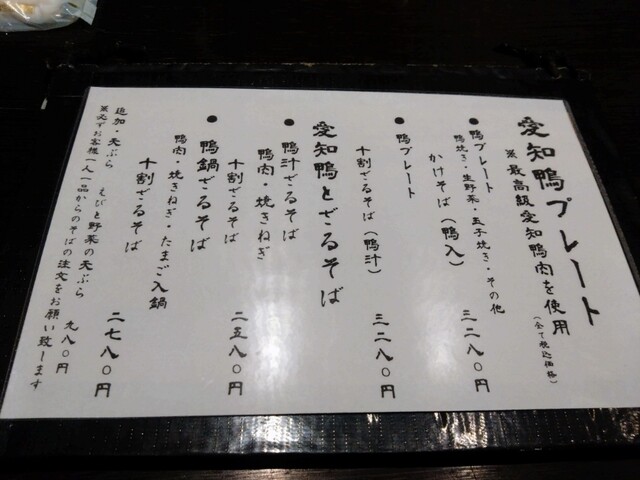 愛知鴨プレート
※最高級愛知鴨肉を使用
(全て税込価格)
●鴨プレート
鴨焼き・生野菜・玉子焼き・その他
かけそば(鴨入) 三二八〇円
●鴨プレート
十割ざるそば(鴨汁) 三二八〇円
愛知鴨とざるそば
●鴨汁ざるそば
鴨肉・焼きねぎ
十割ざるそば 二五八〇円
●鴨鍋ざるそば
鴨肉・焼きねぎ・たまご入鍋
十割ざるそば 二七八〇円
追加・天ぷら えびと野菜の天ぷら 九八〇円
※必ずお客様一人一品からのそばの注文をお願い致します